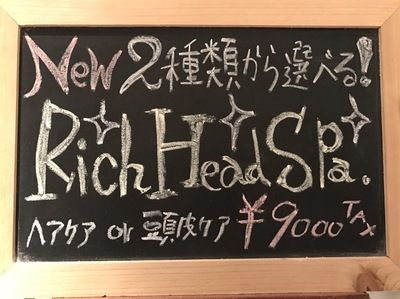 New 2種類から選べる!
Rich Head Spa.
ヘアケア or 頭皮ケア ¥9000 TAX